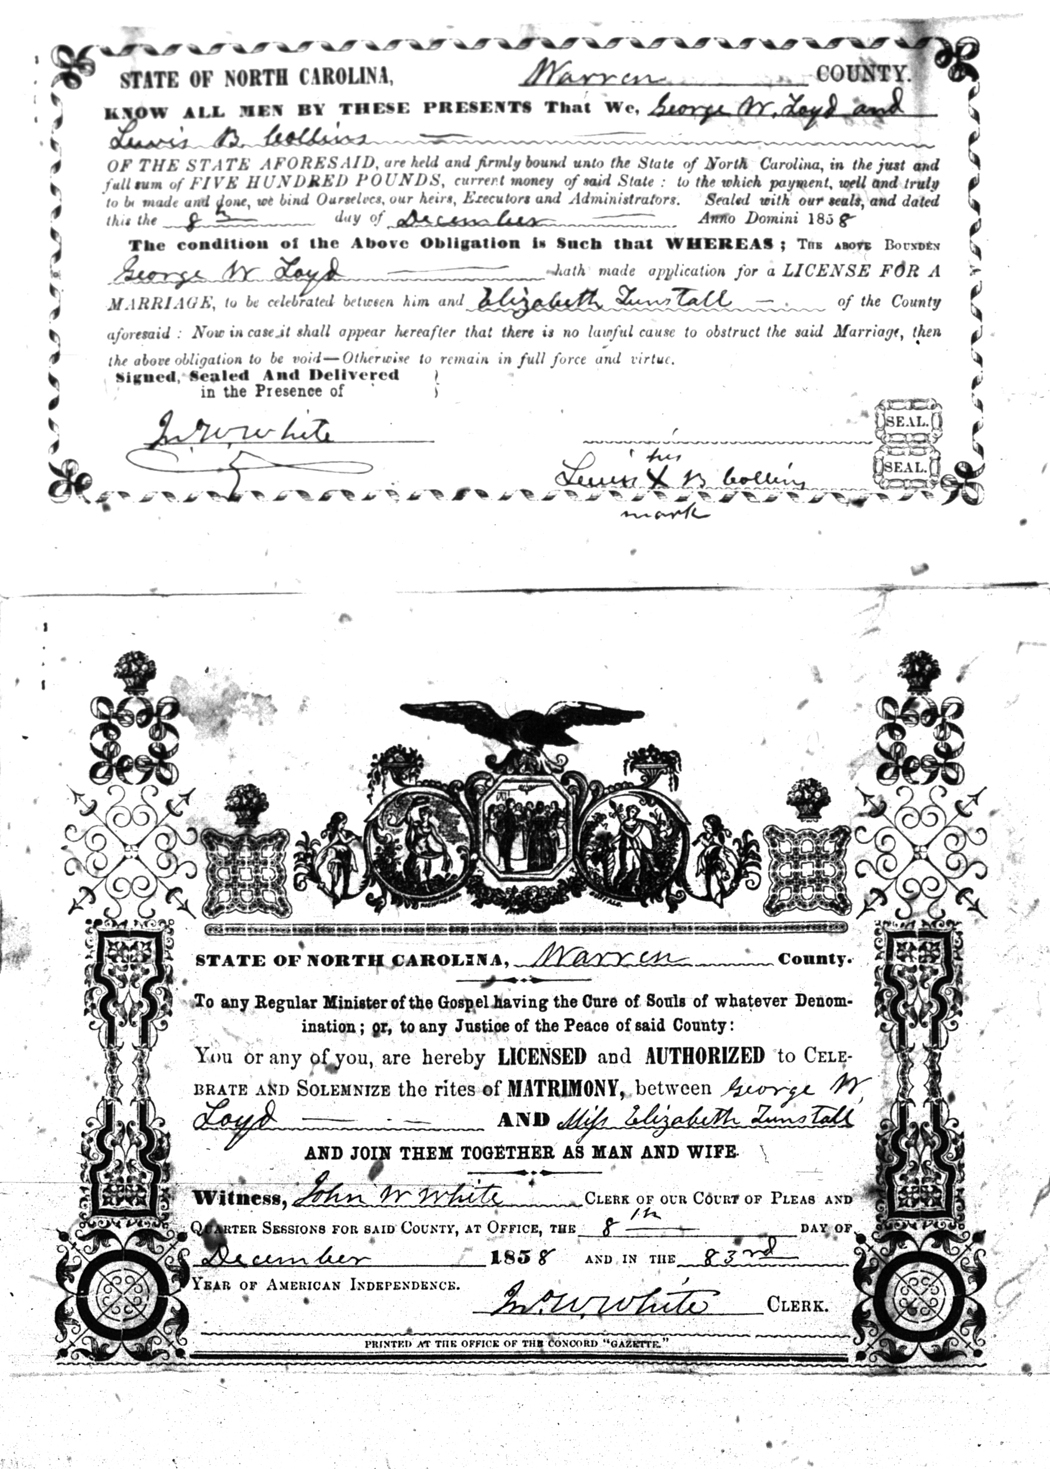 STATE OF NORTH CAROLINA, Warren COUNTY.
KNOW ALL MEN BY THESE PRESENTS That We, George W. Loyd and
Lewis B. Collins
OF THE STATE AFORESAID, are held and firmly bound unto the State of North Carolina, in the just and
full sum of FIVE HUNDRED POUNDS, current money of said State : to the which payment, well and truly
to be made and done, we bind Ourselves, our heirs, Executors and Administrators. Sealed with our seals, and dated
this the 8th day of December Anno Domini 1858
The condition of the Above Obligation is Such that WHEREAS ; THE ABOVE BOUNDEN
George W Loyd hath made application for a LICENSE FOR A
MARRIAGE, to be celebrated between him and Elizabeth Tunstall of the County
aforesaid : Now in case it shall appear hereafter that there is no lawful cause to obstruct the said Marriage, then
the above obligation to be void—Otherwise to remain in full force and virtue.
Signed, Sealed And Delivered
in the Presence of
Jno W. White
SEAL.
his
Lewis X B Collins
SEAL.
mark
STATE OF NORTH CAROLINA, Warren County.
To any Regular Minister of the Gospel having the Cure of Souls of whatever Denom-
ination ; or, to any Justice of the Peace of said County :
You or any of you, are hereby LICENSED and AUTHORIZED to CELE-
BRATE AND SOLEMNIZE the rites of MATRIMONY, between George W.
Loyd AND Miss Elizabeth Tunstall
AND JOIN THEM TOGETHER AS MAN AND WIFE.
Witness, John W White CLERK OF OUR COURT OF PLEAS AND
QUARTER SESSIONS FOR SAID COUNTY, AT OFFICE, THE 8th DAY OF
December 1858 AND IN THE 83rd
YEAR OF AMERICAN INDEPENDENCE.
Jno. W. White CLERK.
PRINTED AT THE OFFICE OF THE CONCORD "GAZETTE."